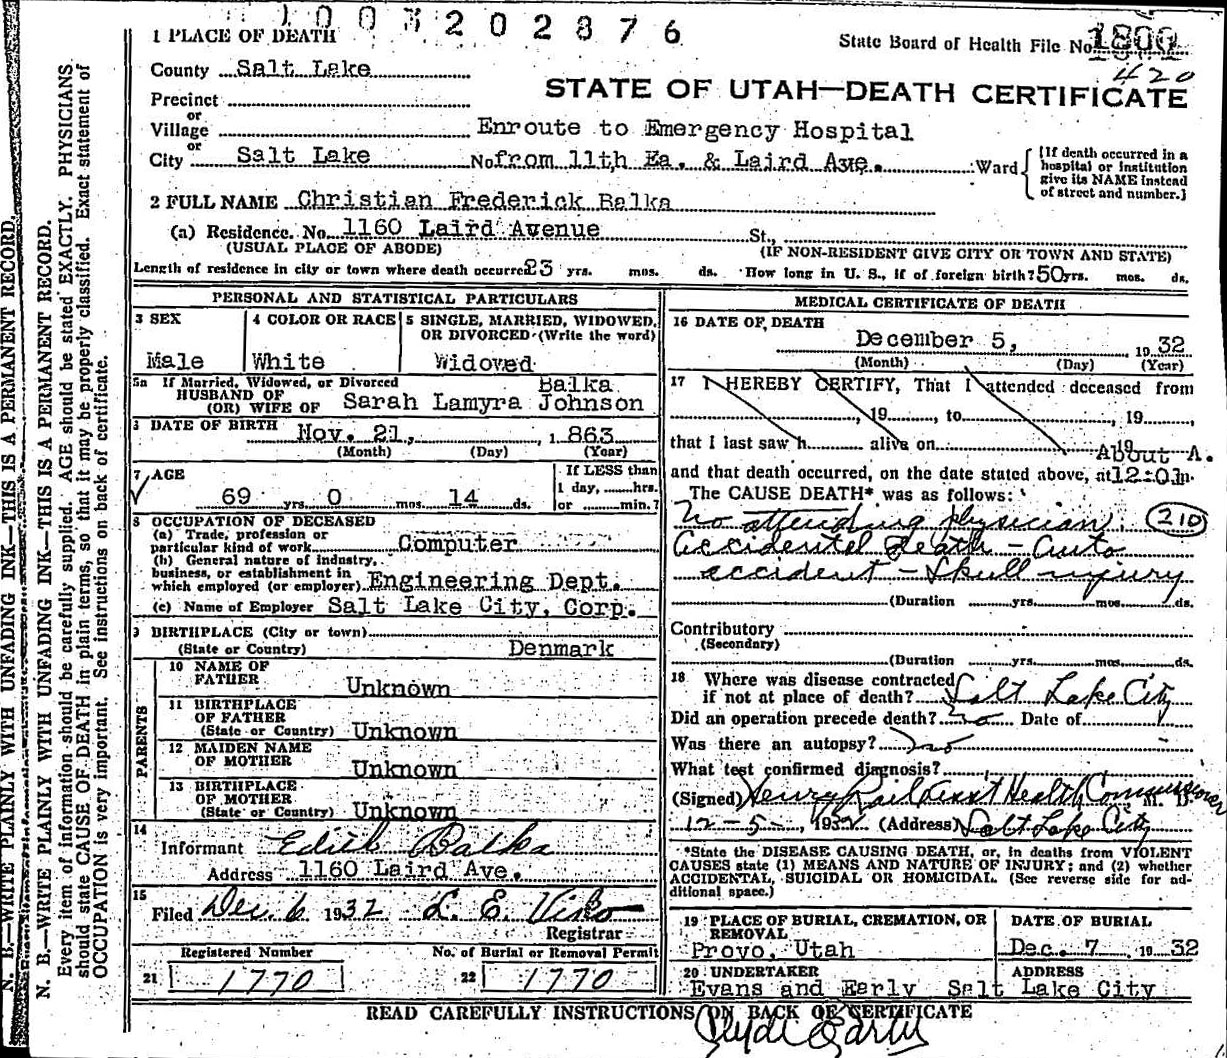 1003202876
1 PLACE OF DEATH
State Board of Health File No. 1800
420
County Salt Lake
STATE OF UTAH—DEATH CERTIFICATE
Precinct
or
Village Enroute to Emergency Hospital
or
City Salt Lake No. from 11th Ea. & Laird Ave. Ward
[If death occurred in a hospital or institution give its NAME instead of street and number.]
2 FULL NAME Christian Frederick Balka
(a) Residence. No. 1160 Laird Avenue St.,
(USUAL PLACE OF ABODE) (IF NON-RESIDENT GIVE CITY OR TOWN AND STATE)
Length of residence in city or town where death occurred 23 yrs. mos. ds. How long in U. S., if of foreign birth? 50 yrs. mos. ds.
PERSONAL AND STATISTICAL PARTICULARS
3 SEX
Male
4 COLOR OR RACE
White
5 SINGLE, MARRIED, WIDOWED, OR DIVORCED (Write the word)
Widowed
5a If Married, Widowed, or Divorced
HUSBAND OF
(OR) WIFE OF
Balka
Sarah Lamyra Johnson
DATE OF BIRTH Nov. 21, 1863
(Month) (Day) (Year)
7 AGE
69 yrs. 0 mos. 14 ds.
If LESS than
1 day, hrs.
or min.?
8 OCCUPATION OF DECEASED
(a) Trade, profession or
particular kind of work Computer
(b) General nature of industry,
business, or establishment in
which employed (or employer) Engineering Dept.
(c) Name of Employer Salt Lake City, Corp.
9 BIRTHPLACE (City or town)
(State or Country) Denmark
PARENTS
10 NAME OF
FATHER Unknown
11 BIRTHPLACE
OF FATHER
(State or Country) Unknown
12 MAIDEN NAME
OF MOTHER Unknown
13 BIRTHPLACE
OF MOTHER
(State or Country) Unknown
14
Informant Edith Balka
Address 1160 Laird Ave.
15
Filed Dec. 6 1932 L. E. Viko
Registrar
Registered Number No. of Burial or Removal Permit
21 1770 22 1770
MEDICAL CERTIFICATE OF DEATH
16 DATE OF DEATH
December 5, 1932
(Month) (Day) (Year)
17 I HEREBY CERTIFY, That I attended deceased from
, 19 , to , 19 ,
that I last saw h alive on 19
About A.
and that death occurred, on the date stated above, at 12:01 m.
The CAUSE DEATH* was as follows:
No attending physician. (210)
accidental death - auto
accident - skull injury
(Duration yrs. mos. ds.
Contributory
(Secondary)
(Duration yrs. mos. ds.
18 Where was disease contracted
if not at place of death? Salt Lake City
Did an operation precede death? no Date of
Was there an autopsy? no
What test confirmed diagnosis?
(Signed) Henry Asst Health Commissioner M. D.
12-5-, 1932 (Address) Salt Lake City
*State the DISEASE CAUSING DEATH, or, in deaths from VIOLENT
CAUSES state (1) MEANS AND NATURE OF INJURY; and (2) whether
ACCIDENTAL, SUICIDAL OR HOMICIDAL. (See reverse side for ad-
ditional space.)
19 PLACE OF BURIAL, CREMATION, OR
REMOVAL
Provo, Utah
DATE OF BURIAL
Dec. 7 1932
20 UNDERTAKER
Evans and Early
ADDRESS
Salt Lake City
READ CAREFULLY INSTRUCTIONS ON BACK OF CERTIFICATE
Clyde Early
N. B.—WRITE PLAINLY WITH UNFADING INK—THIS IS A PERMANENT RECORD.
N. B.—WRITE PLAINLY WITH UNFADING INK—THIS IS A PERMANENT RECORD.
Every item of information should be carefully supplied. AGE should be stated EXACTLY. PHYSICIANS
should state CAUSE OF DEATH in plain terms, so that it may be properly classified. Exact statement of
OCCUPATION is very important. See instructions on back of certificate.